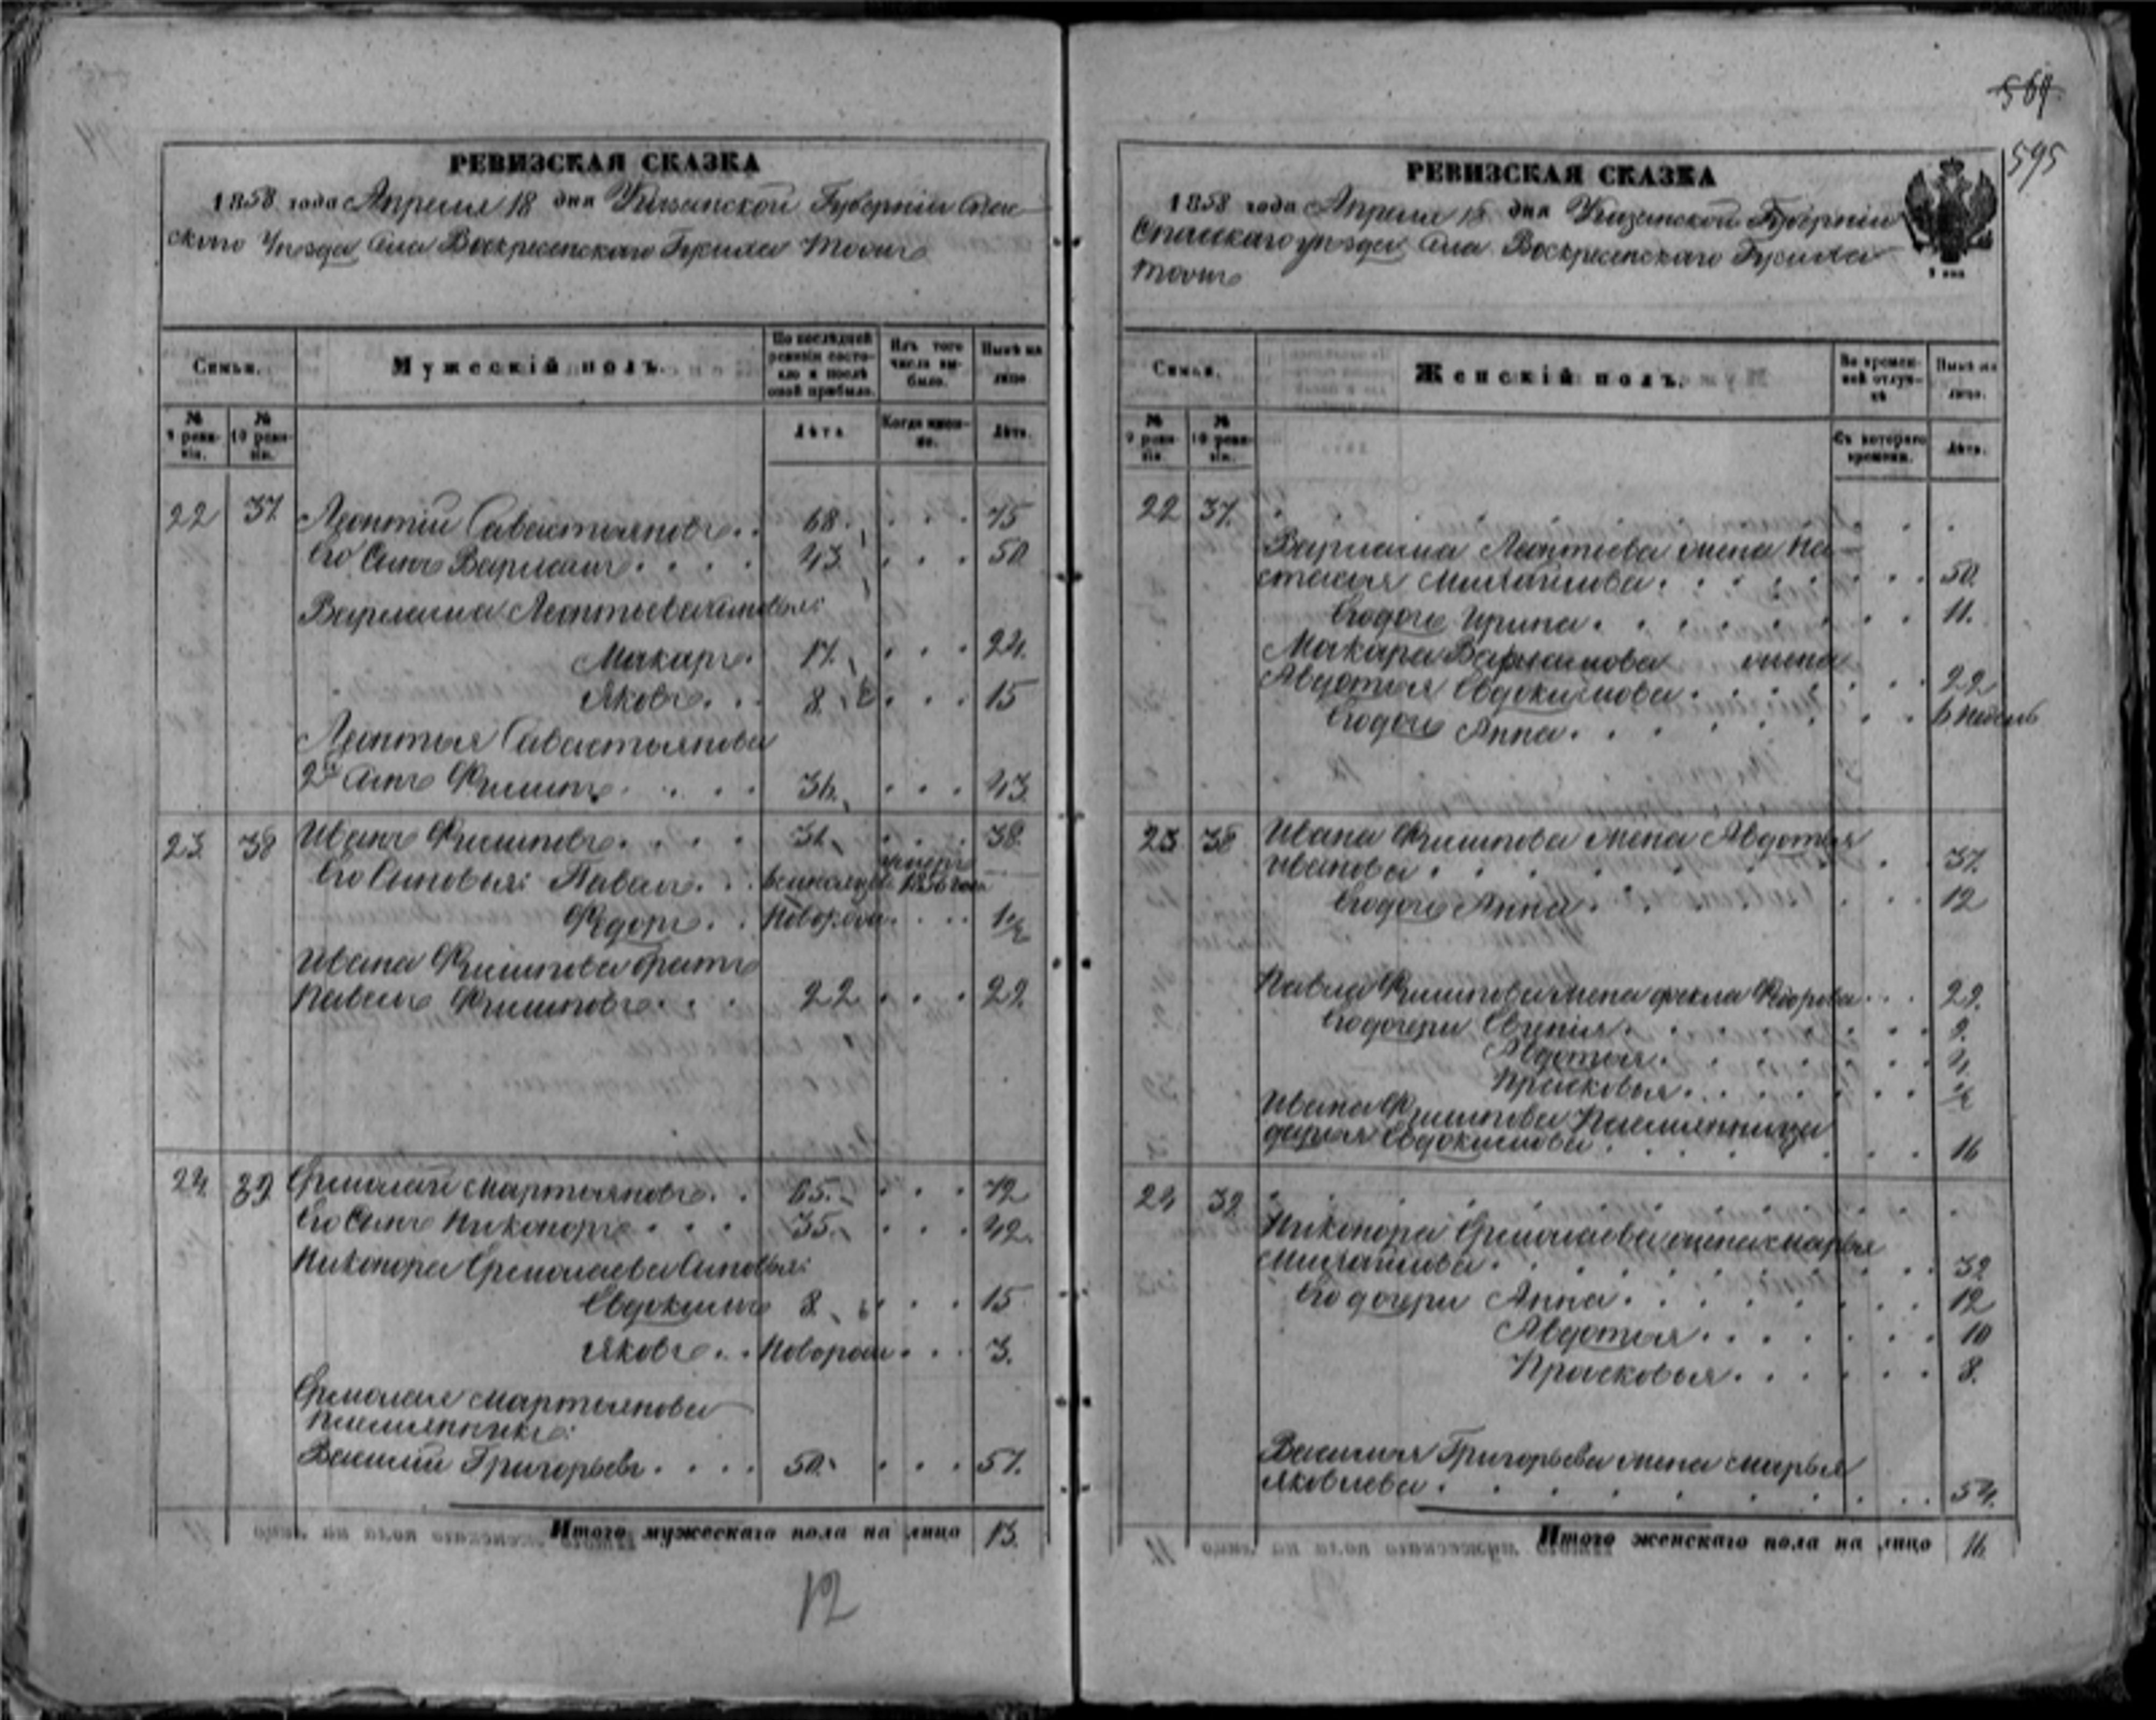 564
595
РЕВИЗСКАЯ СКАЗКА
1858 года Апреля 18 дня Казанской Губерніи Спас-
скаго Уѣзда Села Воскресенскаго Тожъ
Семьи.
Мужескій полъ.
По послѣдней ревизіи состо- яло и послѣ оной прибыло.
Изъ того числа вы- было.
Нынѣ на лицо
№ 9 реви- зіи.
№ 10 реви- зіи.
Лѣта.
Когда имен- но.
Лѣта.
22 37. Леонтій Савастьяновъ 68. 75
Его Сынъ Варламъ 43. 50
Варлама Леонтьева сыновья:
Макаръ 17. 24.
Яковъ 8. 15
Леонтья Савастьянова
2й Сынъ Филипъ 36. 43.
23. 38 Иванъ Филиповъ 31. 38.
Его Сыновья: Павелъ 1856 года
Федоръ Новорож. 1/2
Ивана Филипова братъ
Павелъ Филиповъ 22 29.
24. 39 Ермолай Мартьяновъ 65. 72
Его Сынъ Никоноръ 35. 42.
Никонора Ермолаева Сыновья:
Евдокимъ 8. 15
Яковъ Новорож. 3.
Ермолая Мартьянова
племянникъ:
Василій Григорьевъ 50. 57.
Итого мужескаго пола на лицо 13.
12
РЕВИЗСКАЯ СКАЗКА
1858 года Апреля 18 дня Казанской Губерніи
Спасскаго уѣзда Села Воскресенскаго
тожъ
Семьи.
Женскій полъ.
Во времен- ной отлуч- кѣ
Нынѣ на лицо.
№ 9 реви- зіи.
№ 10 реви- зіи.
Съ котораго времени.
Лѣта.
22 37.
Варлама Леонтьева жена На-
стасья Михайлова 50.
Его дочь Ирина 11.
Макара Варламова жена
Авдотья Евдокимова 22
Его дочь Анна 6 недель
23 38 Ивана Филипова жена Авдотья
Иванова 37.
Его дочь Анна 12
Павла Филипова жена Фекла Федорова 29.
Его дочери Евгенія 9.
Авдотья 4
Прасковья 1/2
Ивана Филипова племянница
Дарья Евдокимова 16
24 39
Никонора Ермолаева жена Марья
Михайлова 39
Его дочери Анна 12
Авдотья 10
Прасковья 8.
Василья Григорьева жена Марья
Яковлева 54.
Итого женскаго пола на лицо 16